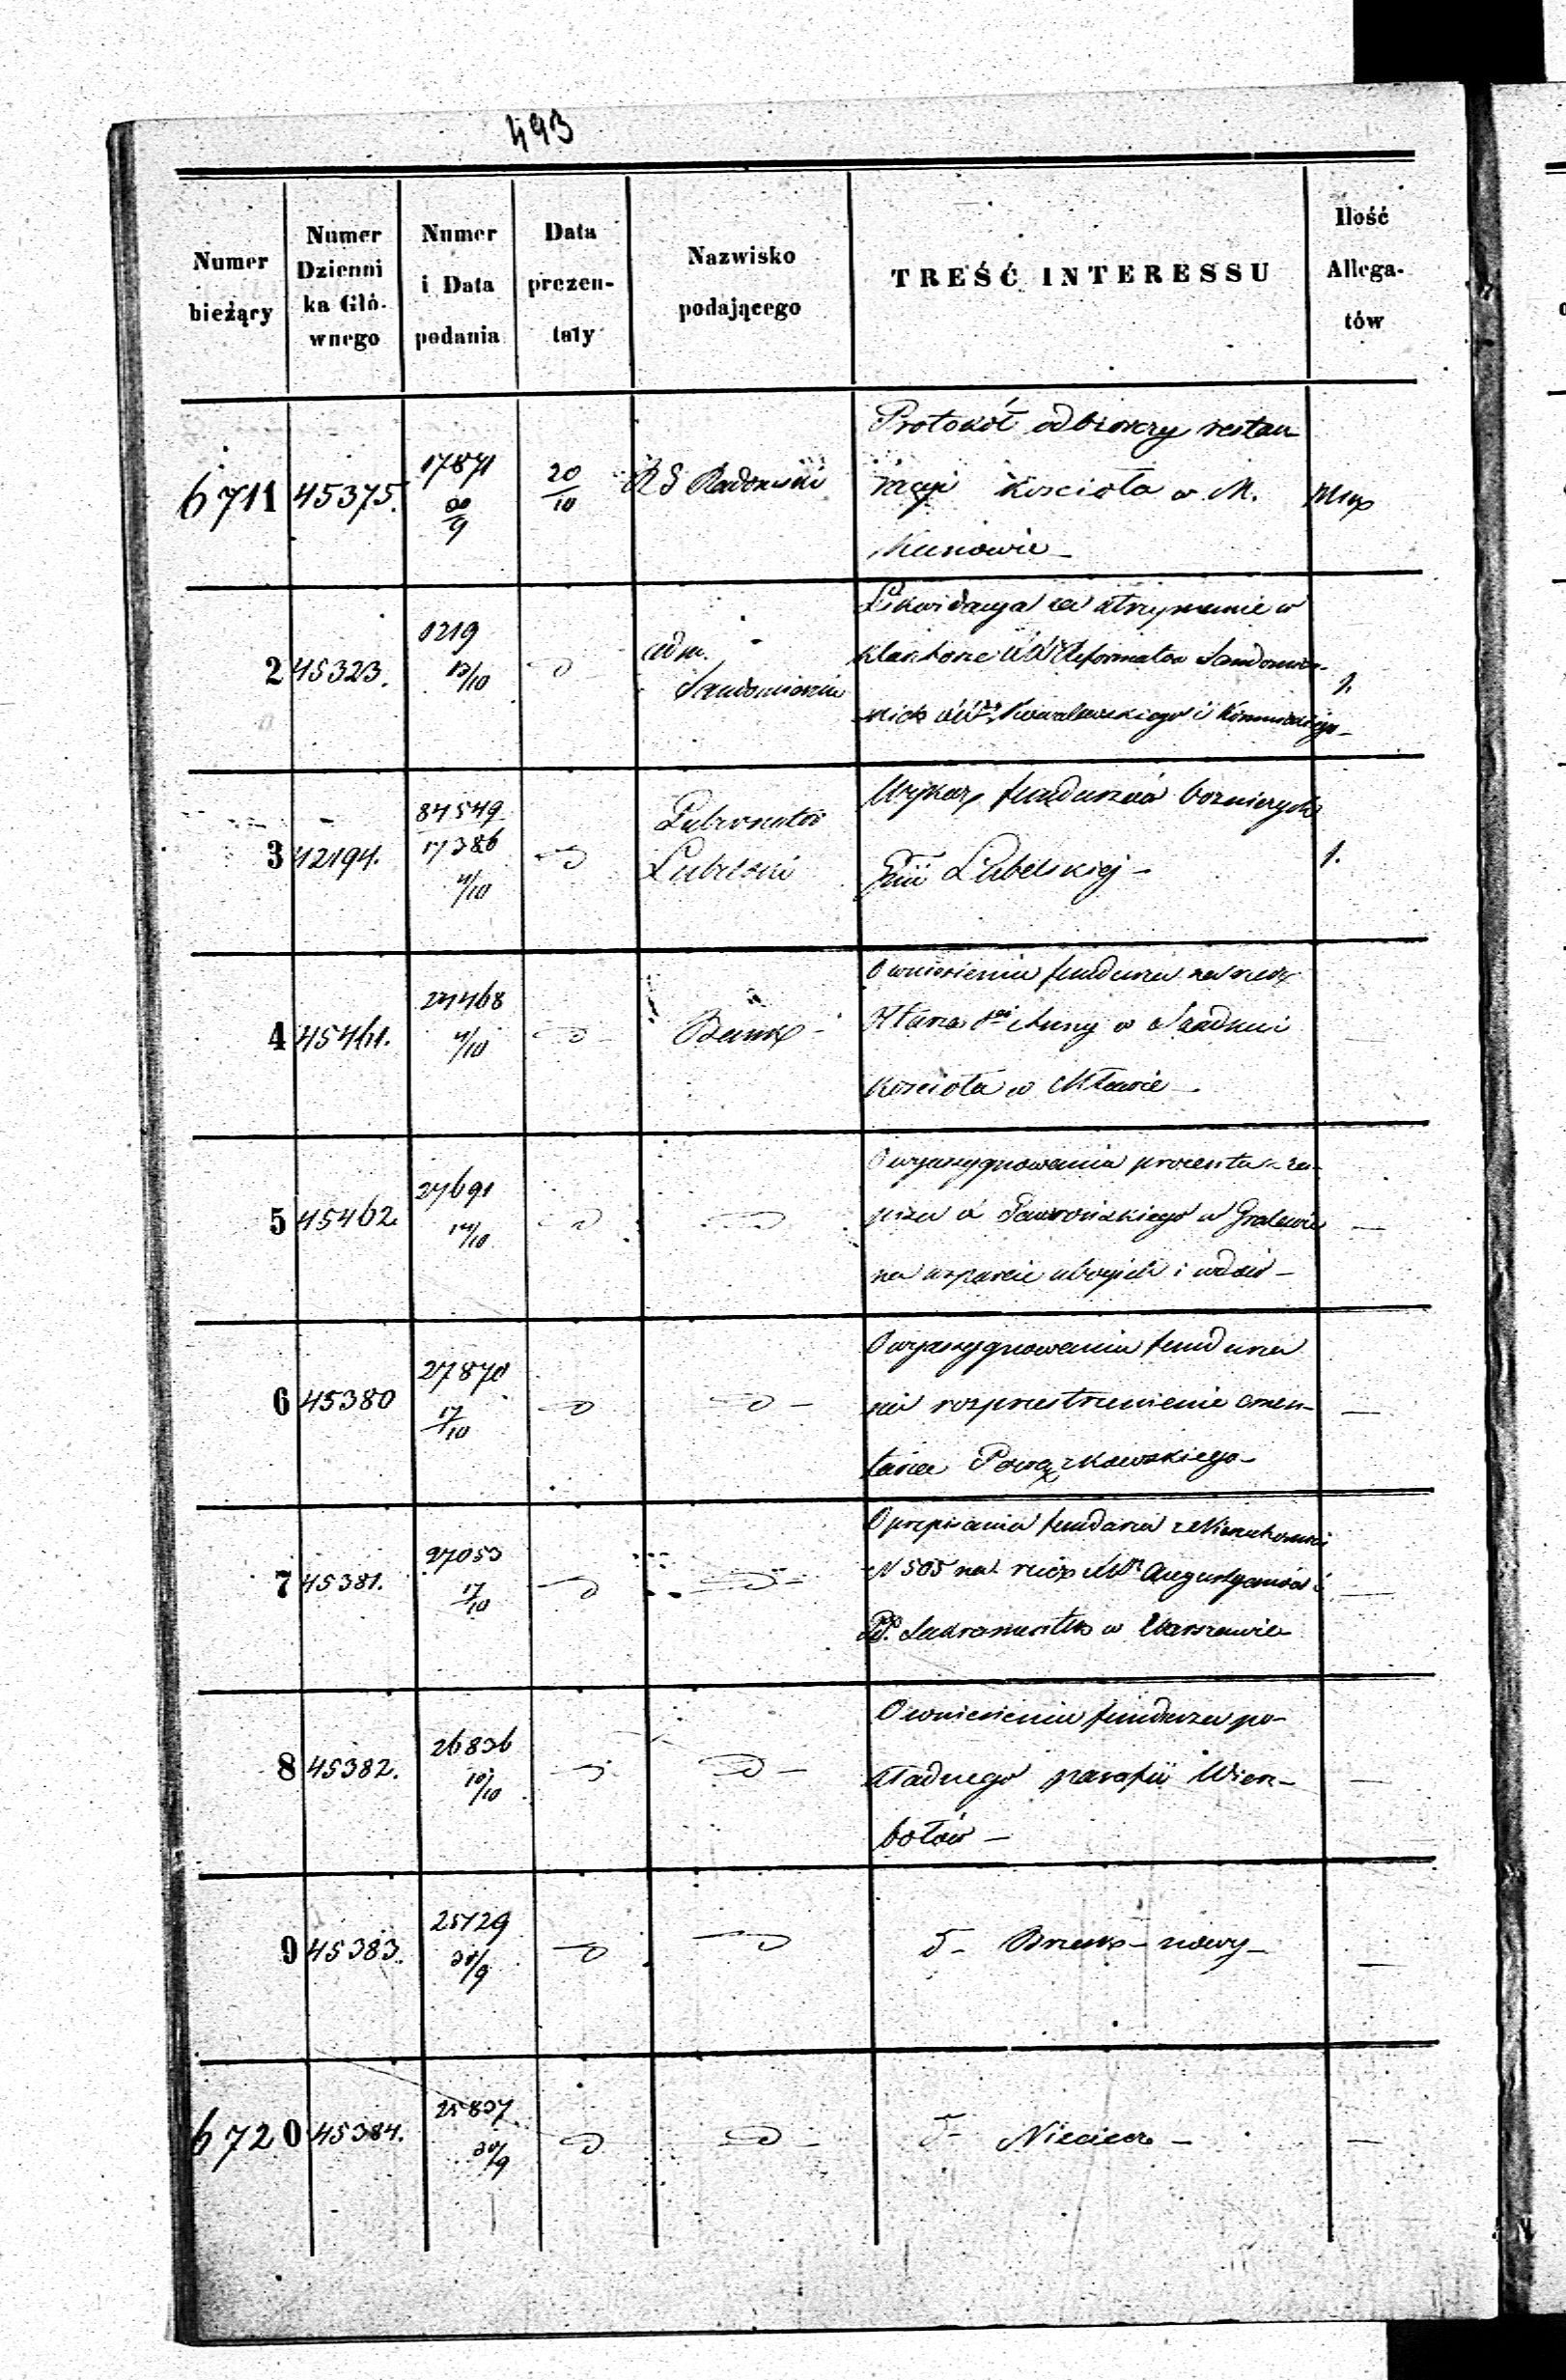 493
Numer bieżący
Numer Dzienni ka Głó- wnego
Numer i Data podania
Data prezen- taty
Nazwisko podającego
TREŚĆ INTERESSU
Ilość Allega- tów
6711 45375. 17871 20/10 R G Radomski
Protokół odbiorczy restau
racyi Kościoła w M.
Kunowie
2 45323. 1219 13/10 adm. Sandomierska
Likwidacya za utrzymanie w
klasztorze Reformatów Sandomier-
skich Kowalewskiego i
1.
3 42194. 84549 17386 11/10 Gubernator Lubelski
Wykaz funduszów bożniczych
Gnii Lubelskiej
1.
4 45461. 27468 11/10 Bank
O wniesieniu funduszu na rzecz
Ołtarza Sej Anny w
Kościoła w Mławie
5 45462. 27691 14/10
O wyasygnowaniu procentu z za-
pisu w Gralewie
na wsparcie ubogich i wdów
6 45380 27870 17/10
O wyasygnowaniu funduszu
na rozprzestrzenienie cmen-
tarza Powązkowskiego
7 45381. 27053 17/10
O przepisaniu funduszu z Nieruchomości
N 505 na rzecz Augustyanów i
PP. Sakramentek w Warszawie
8 45382. 26836 10/10
O wniesieniu funduszu po-
kładnego parafii Wierz-
bołów
9 45383. 25729 30/9
d- Brzesk- nowy
6720 45384. 25837 30/9
d- Nieciecz